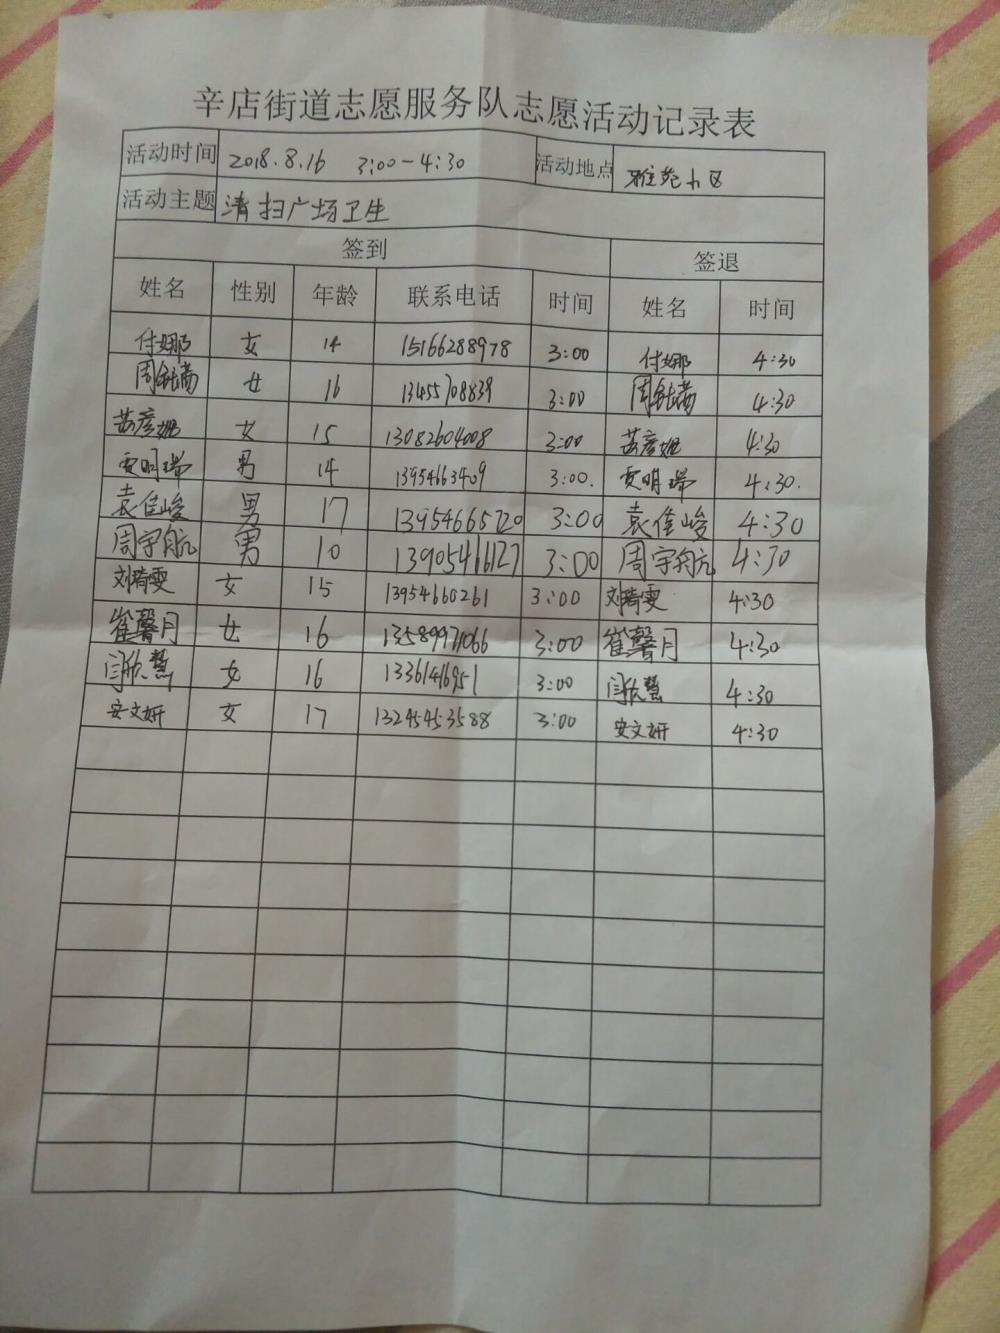 辛店街道志愿服务队志愿活动记录表
活动时间 2018.8.16 3:00-4:30 活动地点 雅苑小区
活动主题 清扫广场卫生
签到 签退
姓名 性别 年龄 联系电话 时间 姓名 时间
付娜 女 14 15166288978 3:00 付娜 4:30
周 女 16 13455708839 3:00 周 4:30
彦妮 女 15 13082604008 3:00 彦妮 4:30
贾明瑞 男 14 13954663409 3:00. 贾明瑞 4:30.
袁佳峻 男 17 13954665720 3:00 袁佳峻 4:30
周宇航 男 10 13905466127 3:00 周宇航 4:30
刘琦雯 女 15 13954660261 3:00 刘琦雯 4:30
崔馨月 女 16 13589971066 3:00 崔馨月 4:30
闫欣慧 女 16 13361416951 3:00 闫欣慧 4:30
安文妍 女 17 13245453588 3:00 安文妍 4:30